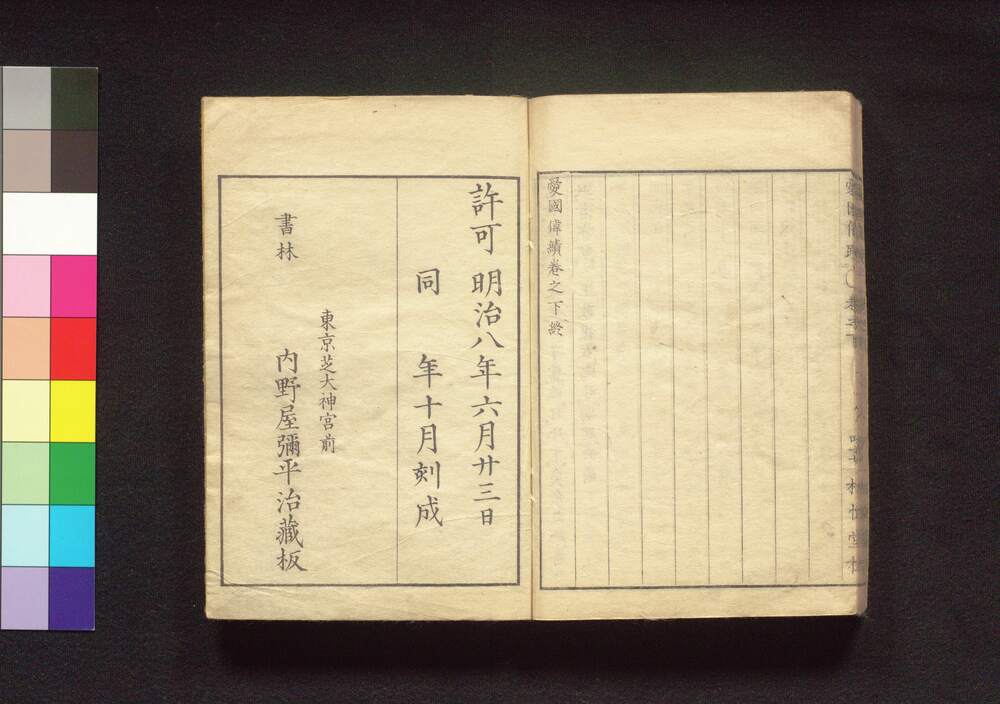 愛國偉績卷之下終
許可 明治八年六月廿三日
同 年十月刻成
東京芝大神宮前
書林 内野屋彌平治藏板